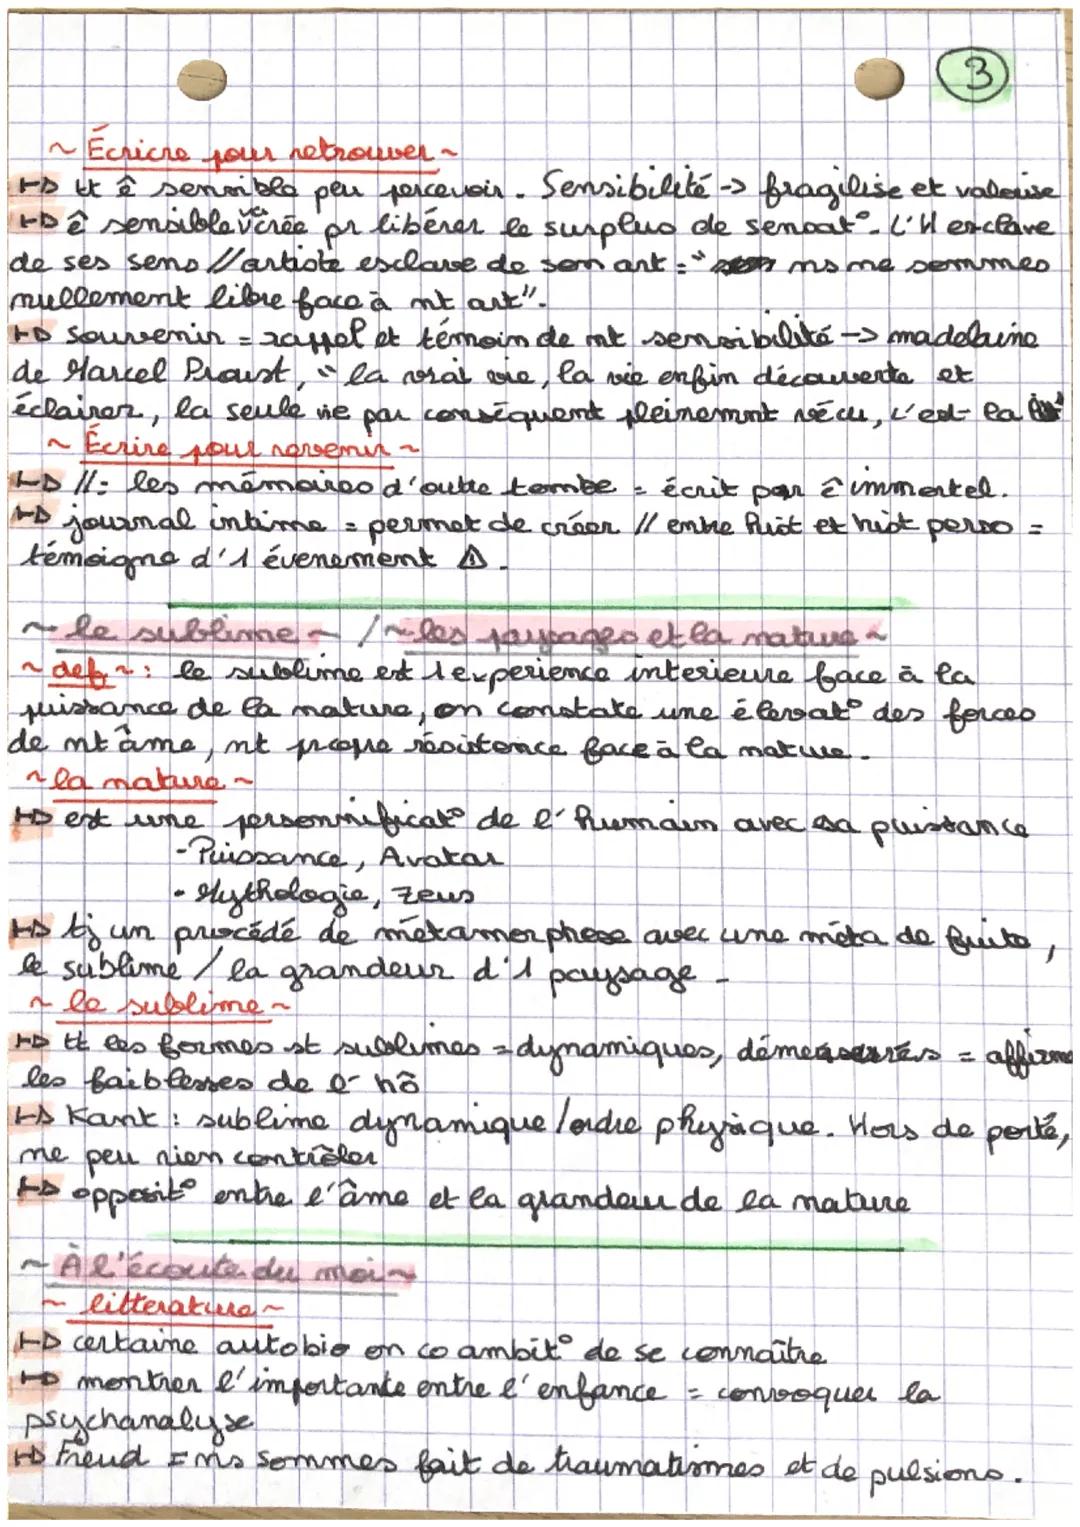 3
~ Écricre pour retrouver ~
tt ê sensible peu percevoir. Sensibilité -> fragilise et valorise
ê sensible crée pr libérer le surplus de sensat°. L'H esclave
de ses sens // artiste esclave de son art = " ns ne sommes
nullement libre face à nt art".
Souvenir = rappel et témoin de nt sensibilité -> madelaine
de Marcel Proust, " la vrai vie, la vie enfin découverte et
éclairer, la seule vie par conséquent pleinemnt vécu, c'est la
~ Écrire pour revenir ~
//: les mémoires d'outre tombe = écrit pour ê immortel.
journal intime = permet de créer // entre hist et hist perso =
témoigne d'1 évenement ⚠.
~ le sublime ~ / ~ les paysages et la nature ~
~ def ~ : le sublime est l'experience interieure face à la
puissance de la nature, on constate une élévat° des forces
de nt âme, nt propre résistance face à la nature.
~ la nature ~
est une personnificat° de l'humain avec sa puissance
- Puissance, Avatar
- Mythologie, Zeus
tj un procédé de métamorphose avec une méta de fuite,
le sublime / la grandeur d'1 paysage -
~ le sublime ~
tt les formes st sublimes = dynamiques, démesurés = affirme
les faiblesses de l'hô
Kant : sublime dynamique / ordre physique. Hors de porté,
ne peu rien contrôler
opposit° entre l'âme et la grandeur de la nature
~ À l'écoute du moi ~
~ litterature ~
certaine autobio on co ambit° de se connaître
montrer l'importante entre l'enfance = convoquer la
psychanalyse
Freud = ns sommes fait de traumatismes et de pulsions.